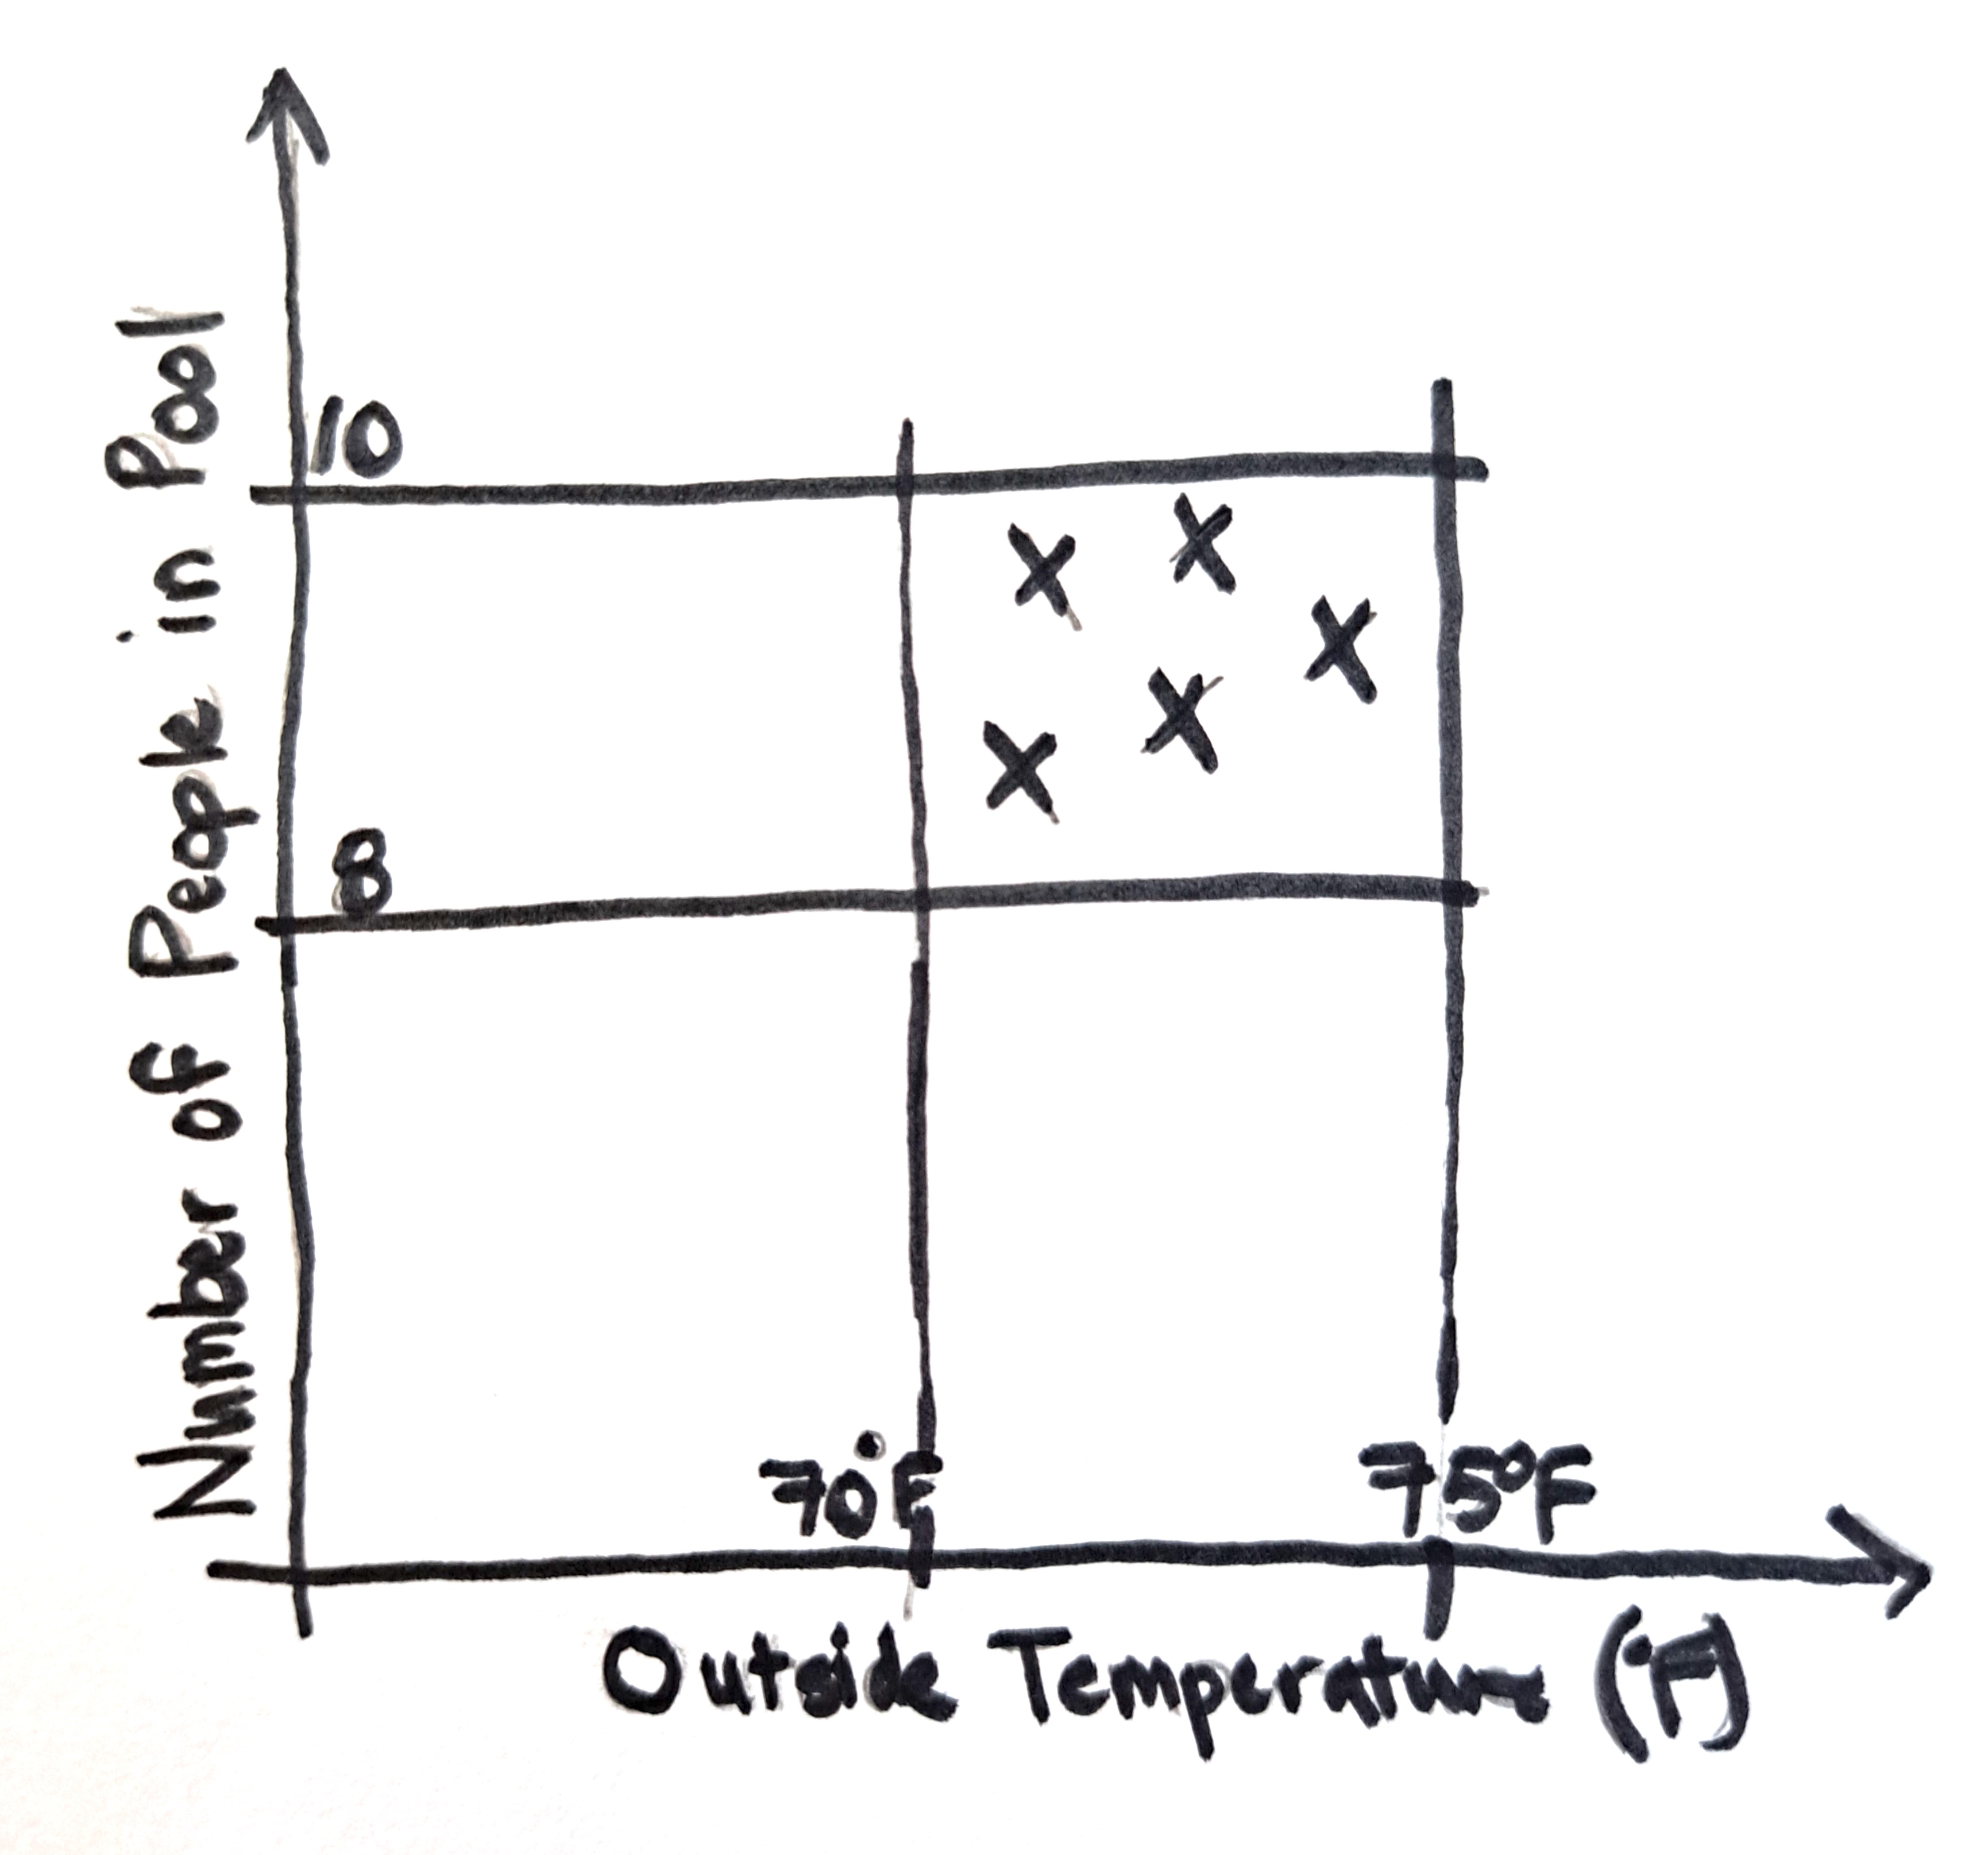 Number of People in Pool
10
8
70°F
75°F
Outside Temperature (°F)